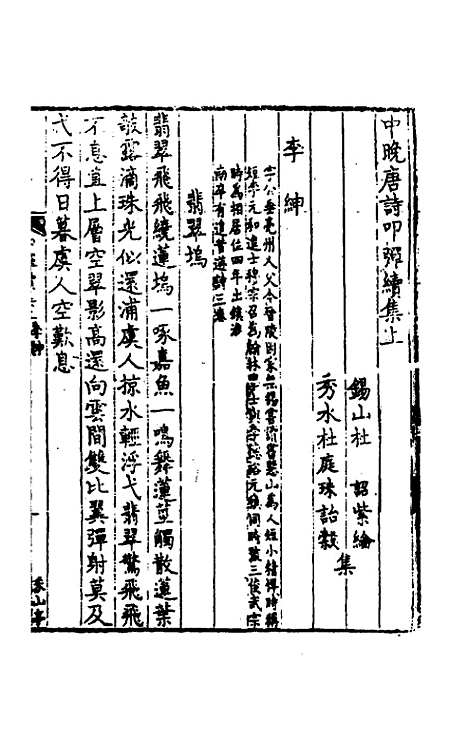 中晚唐詩叩彈續集上
錫山杜 詔紫綸
秀水杜庭珠詒穀
集
李紳
字公垂亳州人父令晉陵因家無錫嘗讀書惠山為人短小精悍時稱
短李元和進士穆宗召為翰林學士與李德裕元稹同時號三俊武宗
時為相居位四年出鎮淮
南卒有追昔遊詩三卷
翡翠塢
翡翠飛飛繞蓮塢一啄嘉魚一鳴舞蓮莖觸散蓮葉
欹露滴珠光似還浦虞人掠水輕浮弋翡翠驚飛飛
不息直上層空翠影高還向雲間雙比翼彈射莫及
弋不得日暮虞人空歎息
采山亭